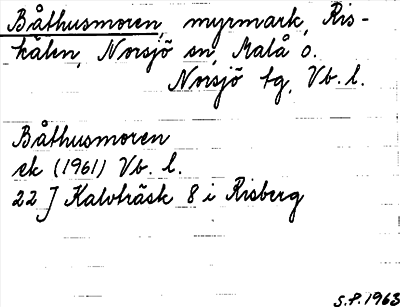 Båthusmoren, myrmark, Ris-
kälen, Norsjö sn, Malå o.
Norsjö tg, Vb. l.
Båthusmoren
ek (1961) Vb. l.
22 J Kalvträsk 8 i Risberg
S.P. 1963